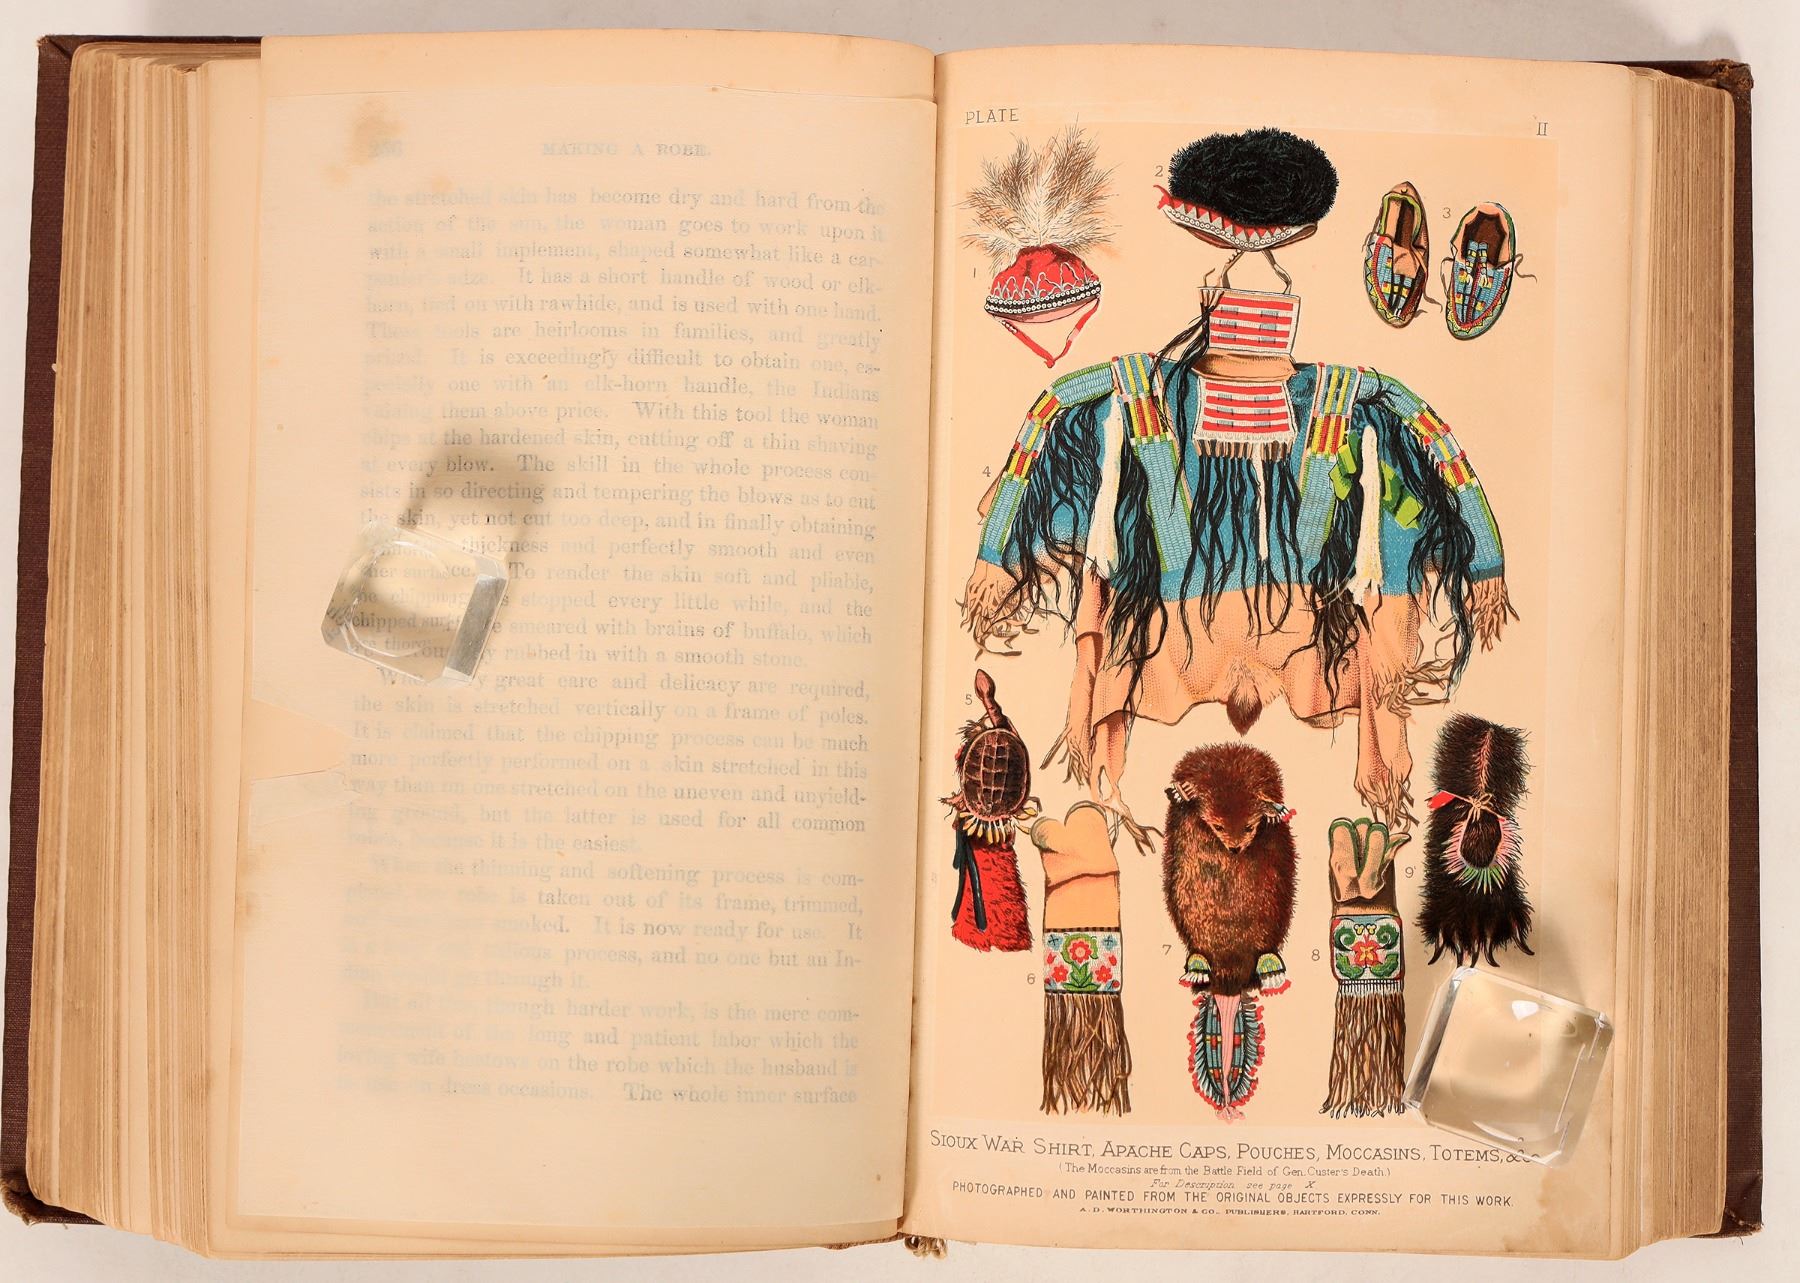 256 MAKING A ROBE.
the stretched skin has become dry and hard from the
action of the sun, the woman goes to work upon it
with a small implement, shaped somewhat like a car-
penter's adze. It has a short handle of wood or elk-
horn, tied on with rawhide, and is used with one hand.
These tools are heirlooms in families, and greatly
prized. It is exceedingly difficult to obtain one, es-
pecially one with an elk-horn handle, the Indians
valuing them above price. With this tool the woman
chips at the hardened skin, cutting off a thin shaving
at every blow. The skill in the whole process con-
sists in so directing and tempering the blows as to cut
the skin, yet not cut too deep, and in finally obtaining
thickness and perfectly smooth and even
surface. To render the skin soft and pliable,
the chipping is stopped every little while, and the
chipped smeared with brains of buffalo, which
are thoroughly rubbed in with a smooth stone.
When very great care and delicacy are required,
the skin is stretched vertically on a frame of poles.
It is claimed that the chipping process can be much
more perfectly performed on a skin stretched in this
way than on one stretched on the uneven and unyield-
ing ground, but the latter is used for all common
robes, because it is the easiest.
When the thinning and softening process is com-
pleted, the robe is taken out of its frame, trimmed,
smoked. It is now ready for use. It
process, and no one but an In-
go through it.
But all this, though harder work, is the mere com-
mencement of the long and patient labor which the
loving wife bestows on the robe which the husband is
to use on dress occasions. The whole inner surface
PLATE II
1
2
3
4
5
6
7
8
9
SIOUX WAR SHIRT, APACHE CAPS, POUCHES, MOCCASINS, TOTEMS, &c.
(The Moccasins are from the Battle Field of Gen. Custer's Death.)
For Description see page X
PHOTOGRAPHED AND PAINTED FROM THE ORIGINAL OBJECTS EXPRESSLY FOR THIS WORK.
A. D. WORTHINGTON & CO., PUBLISHERS, HARTFORD, CONN.